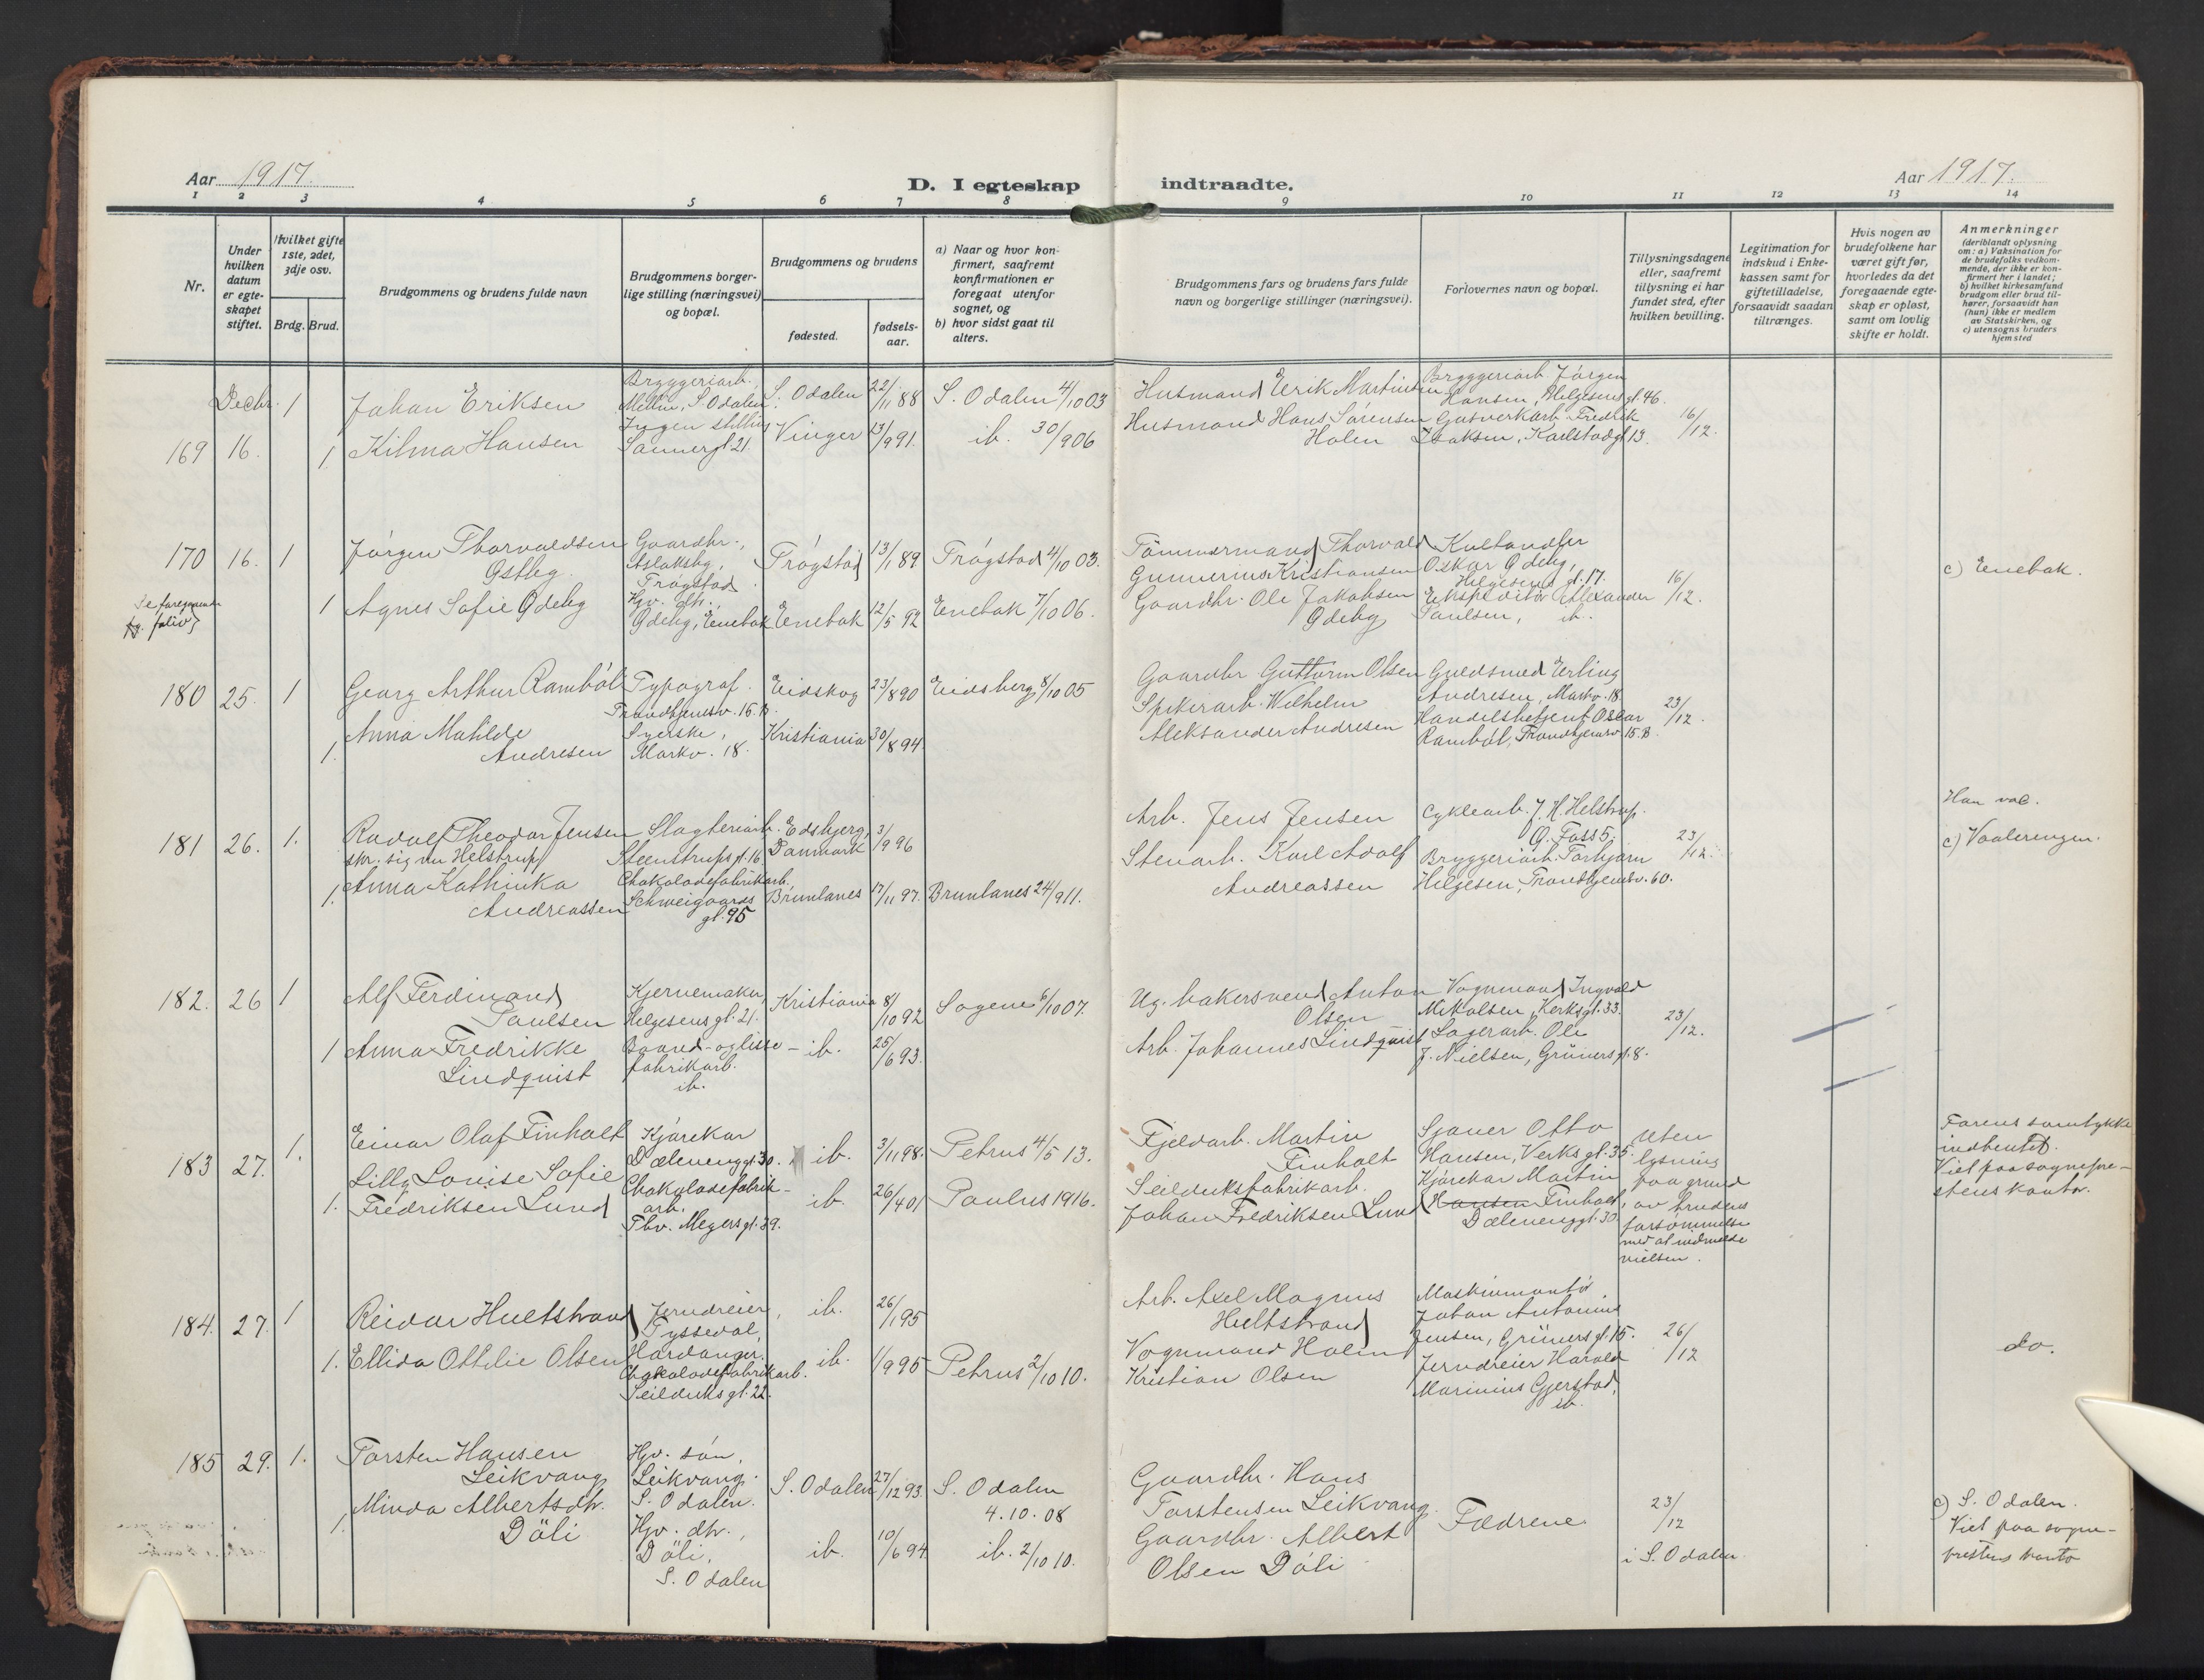 Aar 1917.
D. I egteskap indtraadte.
Aar 1917.
1 2 3 4 5 6 7 8 9 10 11 12 13 14
Nr.
Under hvilken datum er egteskapet stiftet.
Hvilket gifte 1ste, 2det, 3dje osv.
Brdg. Brud.
Brudgommens og brudens fulde navn
Brudgommens borgerlige stilling (næringsvei) og bopæl.
Brudgommens og brudens
fødested.
fødselsaar.
a) Naar og hvor konfirmert, saafremt konfirmationen er foregaat utenfor sognet, og
b) hvor sidst gaat til alters.
Brudgommens fars og brudens fars fulde navn og borgerlige stillinger (næringsvei).
Forlovernes navn og bopæl.
Tillysningsdagene eller, saafremt tillysning ei har fundet sted, efter hvilken bevilling.
Legitimation for indskud i Enkekassen samt for giftetilladelse, forsaavidt saadan tiltrænges.
Hvis nogen av brudefolkene har været gift før, hvorledes da det foregaaende egteskap er opløst, samt om lovlig skifte er holdt.
Anmerkninger
(deriblandt oplysning om: a) Vaksination for de brudefolks vedkommende, der ikke er konfirmert her i landet;
b) hvilket kirkesamfund brudgom eller brud tilhører, forsaavidt han (hun) ikke er medlem av Statskirken, og
c) utensogns bruders hjemsted
169 Decbr. 16. 1 Johan Eriksen
Bryggeriarb. S. Odalen
S. Odalen 22/11 88 S. Odalen 4/10 03
Husmand Erik Martinsen
Bryggeriarb. Jørgen Hansen, Helgesens gt. 46.
1. Kilma Hansen
Ingen stilling Sannergt. 21.
Vinger 13/9 91. ib. 30/9 06
Husmand Hans Sørensen Holen
Gasverkarb. Fredrik Isaksen, Karlstadgt. 13. 16/12.
170 16. 1 Jørgen Thorvaldsen Østbg.
Gaardbr., Aslaksbg, Trøgstad.
Trøgstad 13/1 89 Trøgstad 4/10 03.
Tømmermand Thorvald Gunnerius Kristiansen
Oskar Ødebg, Helgesens gt. 17.
c) Enebak.
1 Agnes Sofie Ødebg
Hjv. dtr., Ødebg, Enebak
Enebak 12/5 92 Enebak 7/10 06.
Gaardbr. Ole Jakobsen Ødebg
Ekspeditør Alexander Paulsen, ib. 16/12.
180 25. 1 Georg Arthur Rambøl
Typograf. Trondhjemsv. 15. B.
Eidskog 23/8 90 Eidsberg 8/10 05
Gaardbr Guttorm Olsen
Guldsmed Erling Andresen, Markv. 18.
1. Anna Matilde Andresen
Syerske, Markv. 18.
Kristiania 30/8 94
Spikerarb. Wilhelm Aleksander Andresen
Handelsbetjent Oscar Rambøl, Trondhjemsv. 15. B. 23/12.
181 26. 1. Rudolf Theodor Jensen
skr. sig nu Helstrup
Slagteriarb. Steenstrups gt. 16.
Edsbjerg, Danmark 3/9 96
Arb. Jens Jensen
Cyklearb. J. H. Helstrup. Ø. Foss 5.
Han vac.
c) Vaalerengen.
1. Anna Kathinka Andreassen
Chokoladefabrikarb. Schweigaards gt. 95
Brunlanes 17/11 97. Brunlanes 24/9 11.
Stenarb. Karl Adolf Andreassen
Bryggeriarb. Torbjørn Helgesen, Trondhjemsv. 60. 23/12.
182. 26 1 Alf Ferdinand Paulsen
Kjernemaker, Helgesens gt. 21.
Kristiania 8/10 92 Sagene 6/10 07.
Ug. makersvend Anton Olsen
Vognmand Ingvald Mikalsen, Verksgt. 33.
1 Anna Fredrikke Lindquist
Baand- og lissefabrikarb. ib.
ib. 25/6 93.
Arb. Johannes Lindquist
Lagerarb. Ole J. Nielsen, Grüners gt. 8. 23/12.
183 27. 1. Einar Olaf Finholt
Kjørekar Dælenenggt. 30.
ib. 3/11 98. Petrus 4/5 13.
Fjeldarb. Martin Finholt
Sjauer Otto Hansen, Verksgt. 35.
Uten lysning paa grund av brudens forsømmelse med at indmelde vielsen.
Farens samtykke indhentet.
Viet paa sogneprestens kontor.
1. Lilly Louise Sofie Fredriksen Lund
Chokoladefabrikarb. Thv. Meyers gt. 39.
ib. 26/4 01 Paulus 1916.
Seildugsfabrikarb. Johan Fredriksen Lund
Kjørekar Martin Hansen Finholt, Dælenenggt. 30
184. 27. 1 Reidar Hultstrand
Jerndreier, Tyssedal, Hardanger.
ib. 26/1 95
Arb. Axel Magnus Hultstrand
Maskinmontør Johan Antonius Jensen, Grüners gt. 15. 26/12
do.
1. Ellida Ottilie Olsen
Chokoladefabrikarb. Seilduks gt. 22.
ib. 1/9 95 Petrus 2/10 10.
Vognmand Holm Kristian Olsen
Jerndreier Harald Marinius Gjerstad, ib.
185 29. 1. Torsten Hansen Leikvang
Hjv. søn, Leikvang. S. Odalen.
S. Odalen 27/12 93. S. Odalen 4.10.08
Gaardbr. Hans Torstensen Leikvang.
Fædrene
23/12 i S. Odalen.
c) S. Odalen.
Viet paa sogneprestens kontor
1. Minda Albertsdtr. Döli
Hjv. dtr., Döli, S. Odalen
ib. 10/6 94 ib. 2/10 10.
Gaardbr. Albert Olsen Döli